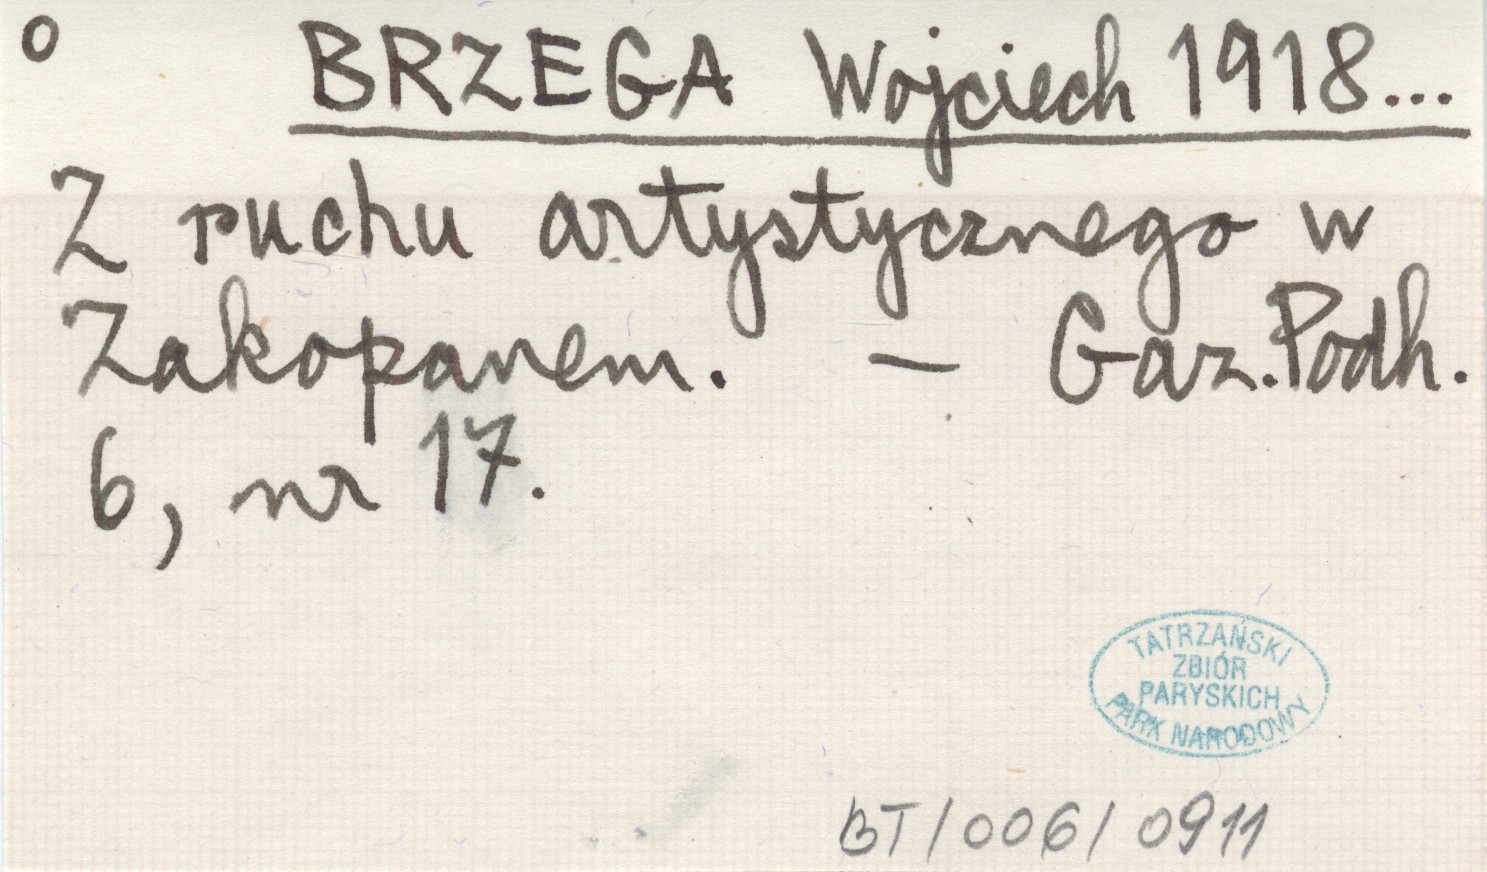 o BRZEGA Wojciech 1918...
Z ruchu artystycznego w
Zakopanem. — Gaz. Podh.
6, nr 17.
TATRZAŃSKI
ZBIÓR
PARYSKICH
PARK NARODOWY
BT/006/0911